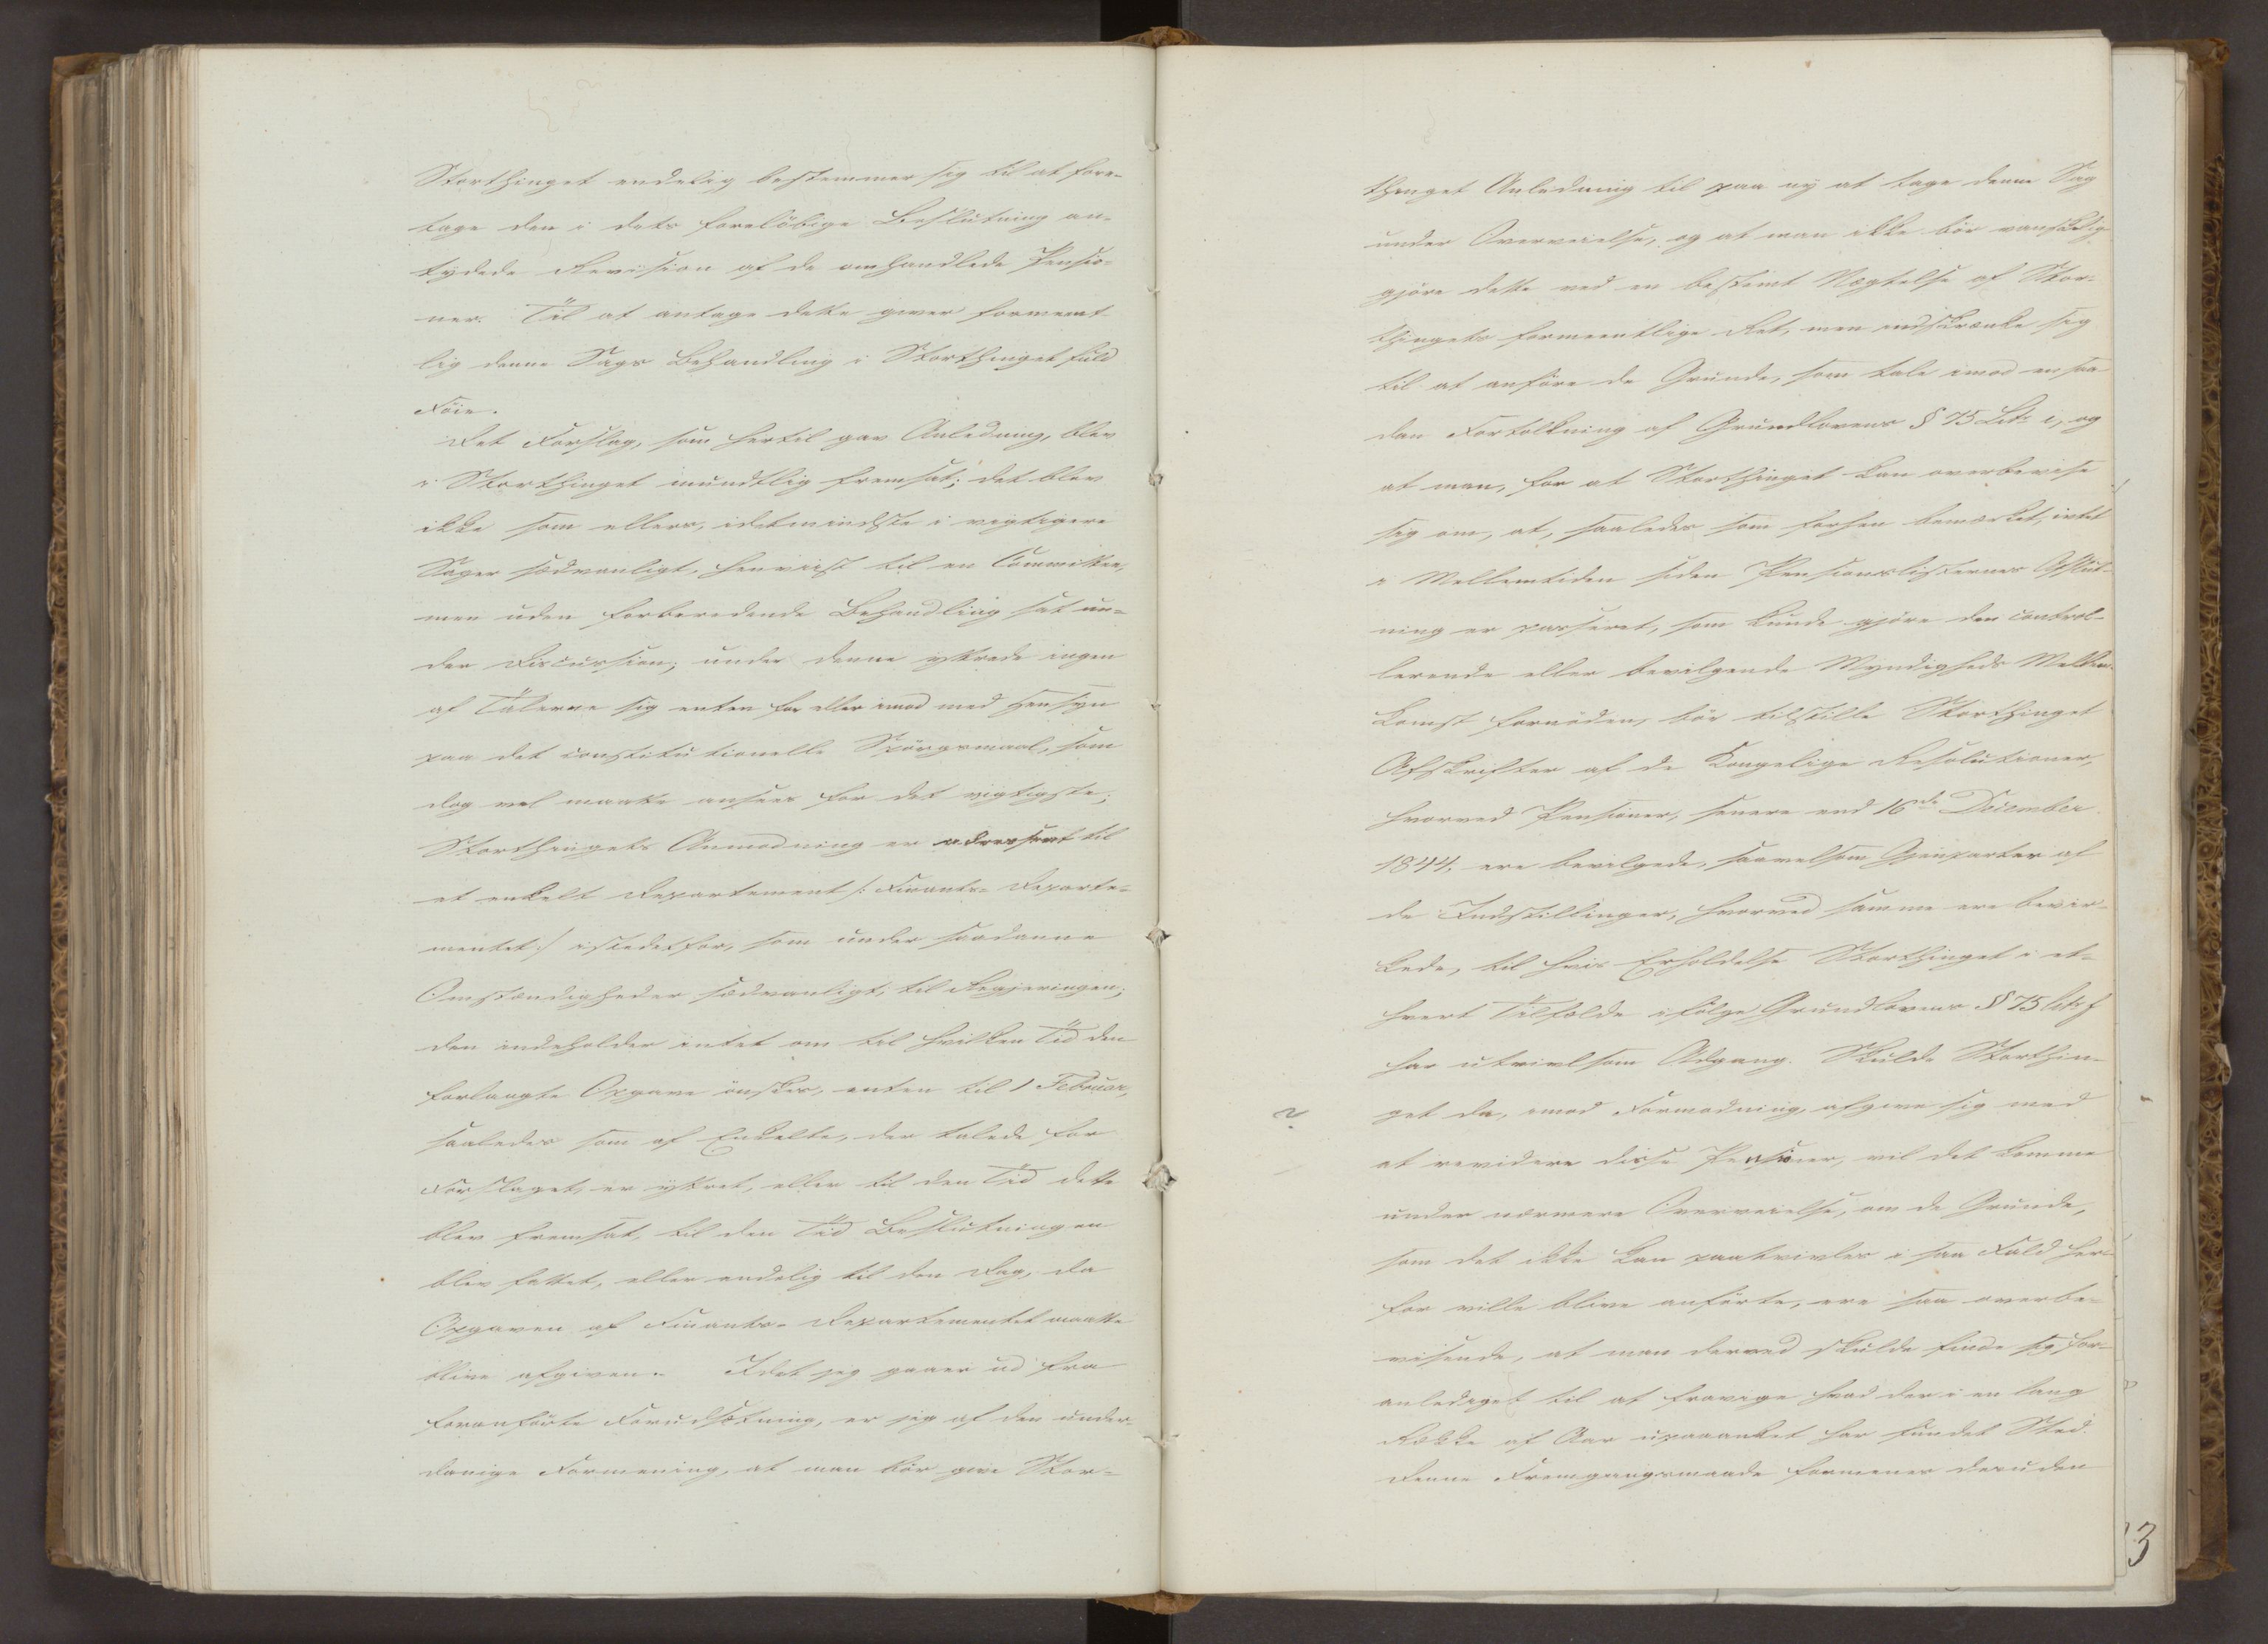 Storthinget endelig bestemmer sig til at fore-
tage den i dets foreløbige Beslutning an-
tydede Revision af de omhandlede Pensio-
ner. Til at antage dette giver formeent-
lig denne Sags Behandling i Storthinget fuld
Föie.
Det Forslag, som hertil gav Anledning, blev
i Storthinget mundtlig fremsat; det blev
ikke som ellers, idetmindste i vigtigere
Sager sædvanligt, henviist til en Committee,
men uden forberedende Behandling sat un-
der Discussion; under denne yttrede ingen
af Talerne sig enten for eller imod med Hensyn
paa det constitutionelle Spörgsmaal, som
dog vel maatte ansees for det vigtigste;
Storthingets Anmodning er adresseret til
et enkelt Departement /: Finants-Departe-
mentet :/ istedetfor, som under saadanne
Omstændigheder sædvanligt, til Regjeringen;
den indeholder intet om til hvilken Tid den
forlangte Opgave önskes, enten til 1 Februar,
saaledes som af Enkelte, der talede for
Forslaget, er yttret, eller til den Tid dette
blev fremsat, til den Tid Beslutningen
blev fattet, eller endelig til den Dag, da
Opgaven af Finants-Departementet maatte
blive afgiven. Idet jeg gaaer ud fra
foranförte Forudsætning, er jeg af den under-
danige Formening, at man bör give Stor-
thinget Anledning til paa ny at tage denne Sag
under Overveielse, og at man ikke bör vanskelig-
gjöre dette ved en bestemt Nægtelse af Stor-
thingets formeentlige Ret, men indskrænke sig
til at anföre de Grunde, som tale imod en saa-
dan Fortolkning af Grundlovens § 75 Litr i, og
at man, for at Storthinget kan overbevise
sig om, at, saaledes som forhen bemærket, intet
i Mellemtiden siden Pensionslisternes Afslut-
ning er passeret, som kunde gjöre den control-
lerende eller bevilgende Myndigheds Mellem-
komst fornöden, bör tilstille Storthinget
Afskrifter af de Kongelige Resolutioner,
hvorved Pensioner, senere end 16de December
1844, ere bevilgede, saavelsom Gjenparter af
de Indstillinger, hvorved samme ere bevir-
kede, til hvis Erholdelse Storthinget i et-
hvert Tilfælde ifölge Grundlovens § 75 Litr f
har utvivlsom Adgang. Skulde Storthin-
get da, imod Formodning, afgive sig med
at revidere disse Pensioner, vil det komme
under nærmere Overveielse, om de Grunde,
som det ikke kan paatvivles i saa Fald her-
for ville blive anförte, ere saa overbe-
visende, at man derved skulde finde sig for-
anlediget til at fravige hvad der i en lang
Række af Aar upaaanket har fundet Sted.
Denne Fremgangsmaade formener desuden